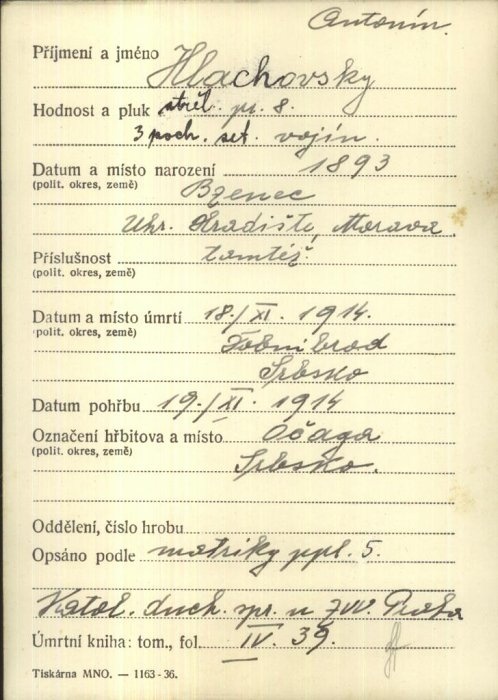 Antonín.
Příjmení a jméno Hlachovsky
Hodnost a pluk střel. pl. 8.
3 poch. set. vojín.
Datum a místo narození 1893
(polit. okres, země) Bzenec
Uhr. Hradište, Morava.
Příslušnost tamtéž.
(polit. okres, země)
Datum a místo úmrtí 18./XI. 1914.
(polit. okres, země) brod
Srbsko
Datum pohřbu 19./XI. 1914
Označení hřbitova a místo Očaga
(polit. okres, země) Srbsko.
Oddělení, číslo hrobu
Opsáno podle matriky ppl. 5.
Katol. duch. spr. u ZVV. Praha
Úmrtní kniha: tom., fol. IV. 39.
Tiskárna MNO. — 1163-36.